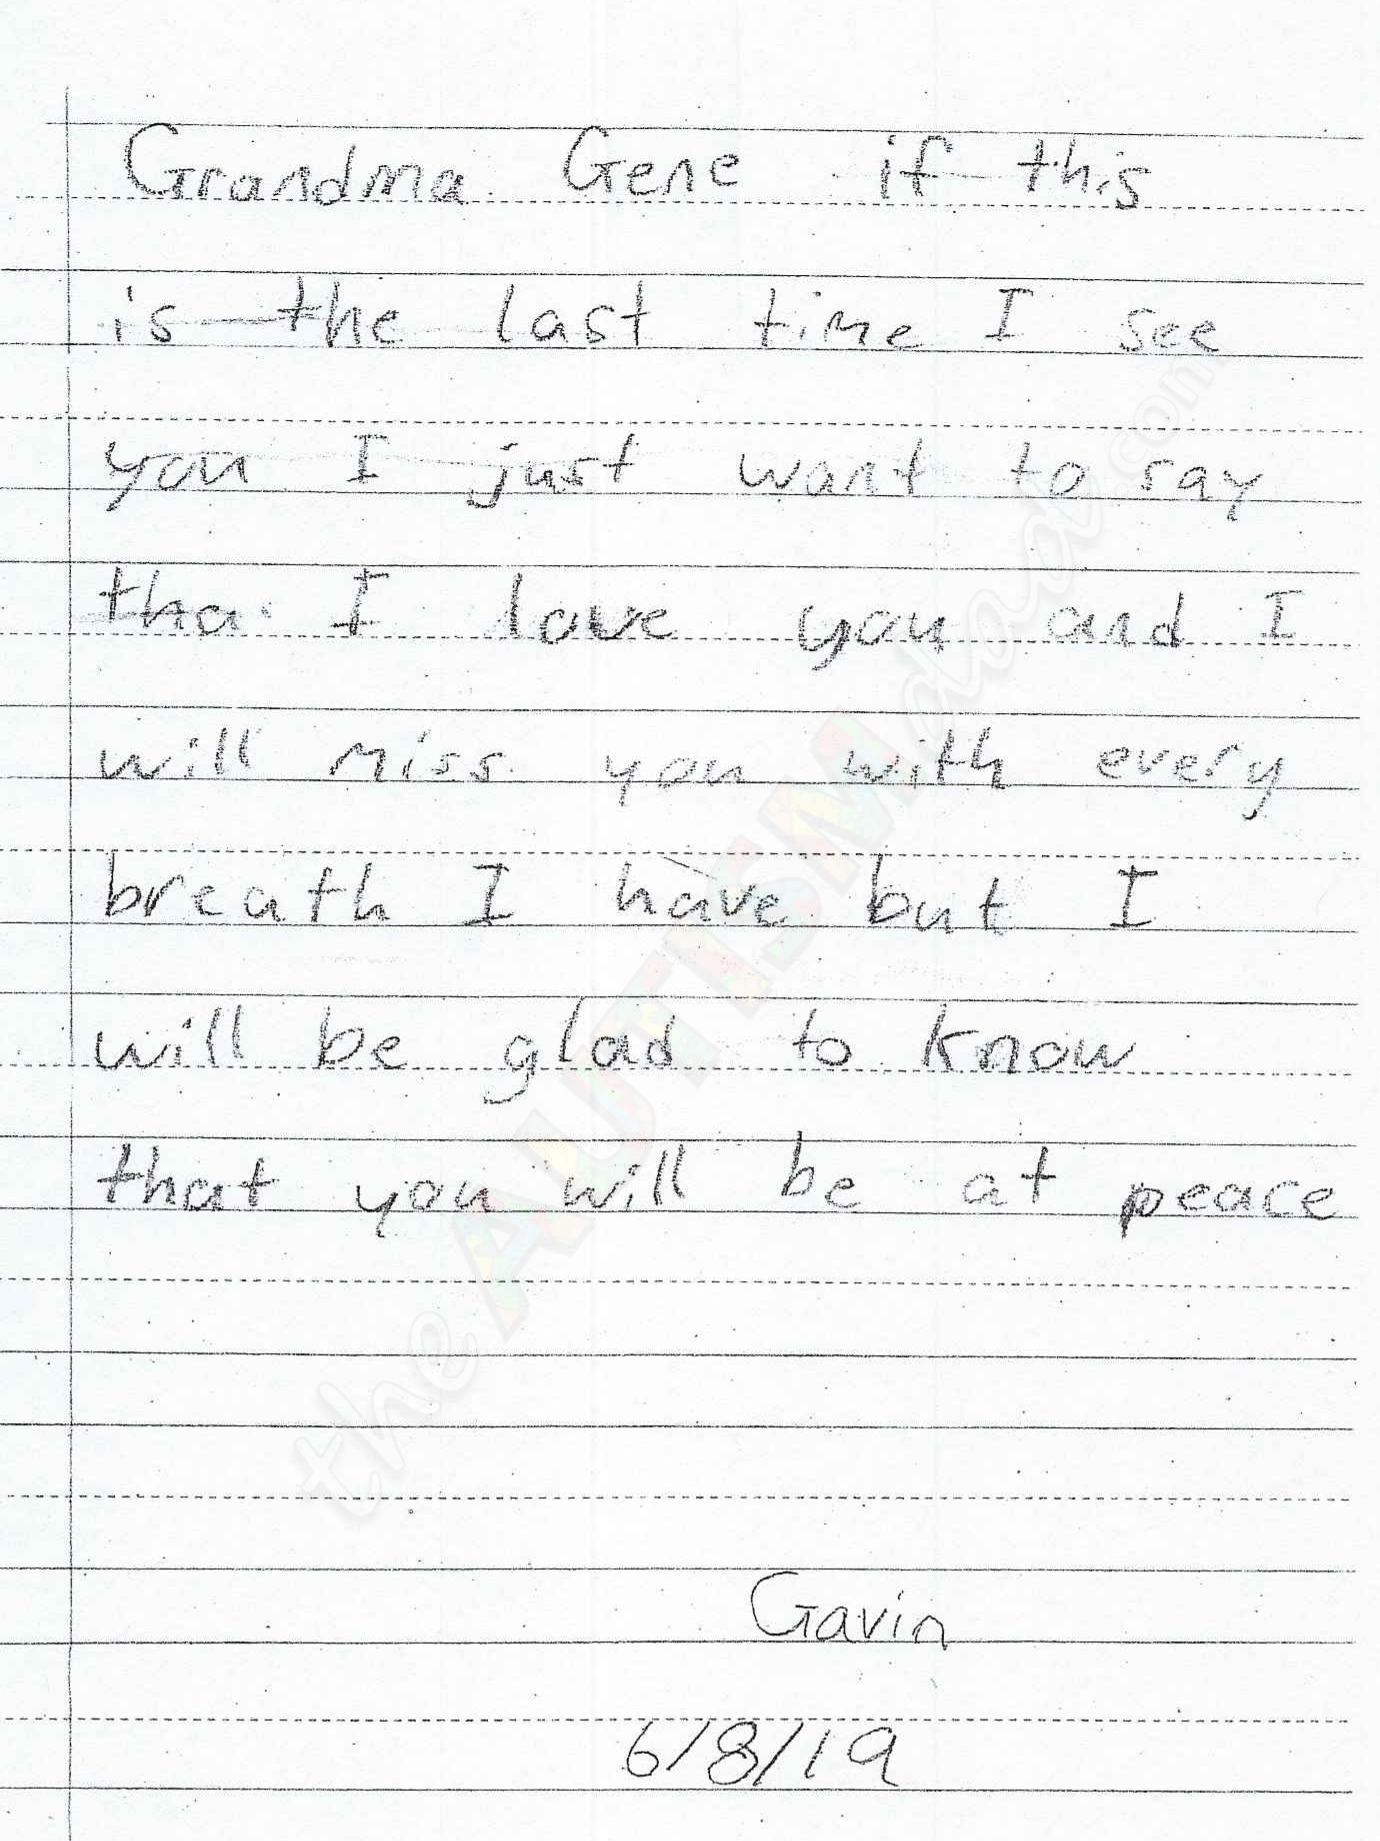 Grandma Gene if this
is the last time I see
you I just want to say
tha I love you and I
will miss you with every
breath I have but I
will be glad to know
that you will be at peace
Gavin
6/8/19
the AUTISM dad.com